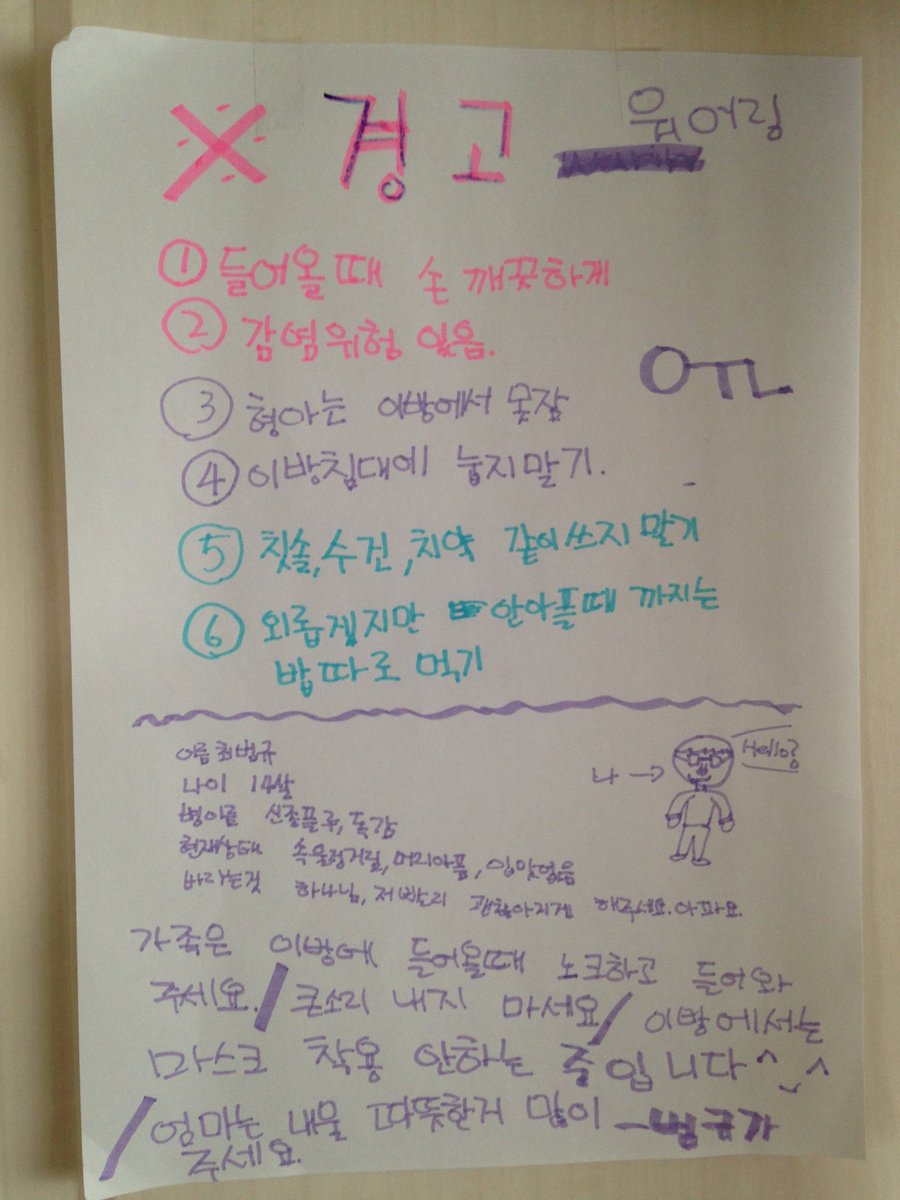 ※ 경고 워어링
① 들어올때 손 깨끗하게
② 감염위험 있음.
OTL
③ 형아는 이방에서 못잠
④ 이방침대에 눕지말기.
⑤ 칫솔,수건,치약 같이쓰지 말기
⑥ 외롭겠지만 안아플때 까지는
밥따로 먹기
이름 최범규
나이 14살
병이름 신종플루, 독감
현재상태 속울렁거림, 머리아픔, 입맛없음
바라는것 하나님, 저 빨리 괜찮아지게 해주세요. 아파요.
나 →
Hello?
가족은 이방에 들어올때 노크하고 들어와
주세요./ 큰소리 내지 마세요/ 이방에서는
마스크 착용 안하는 중입니다^‿^
/ 엄마는 내물 따뜻한거 많이 -범규가
주세요.